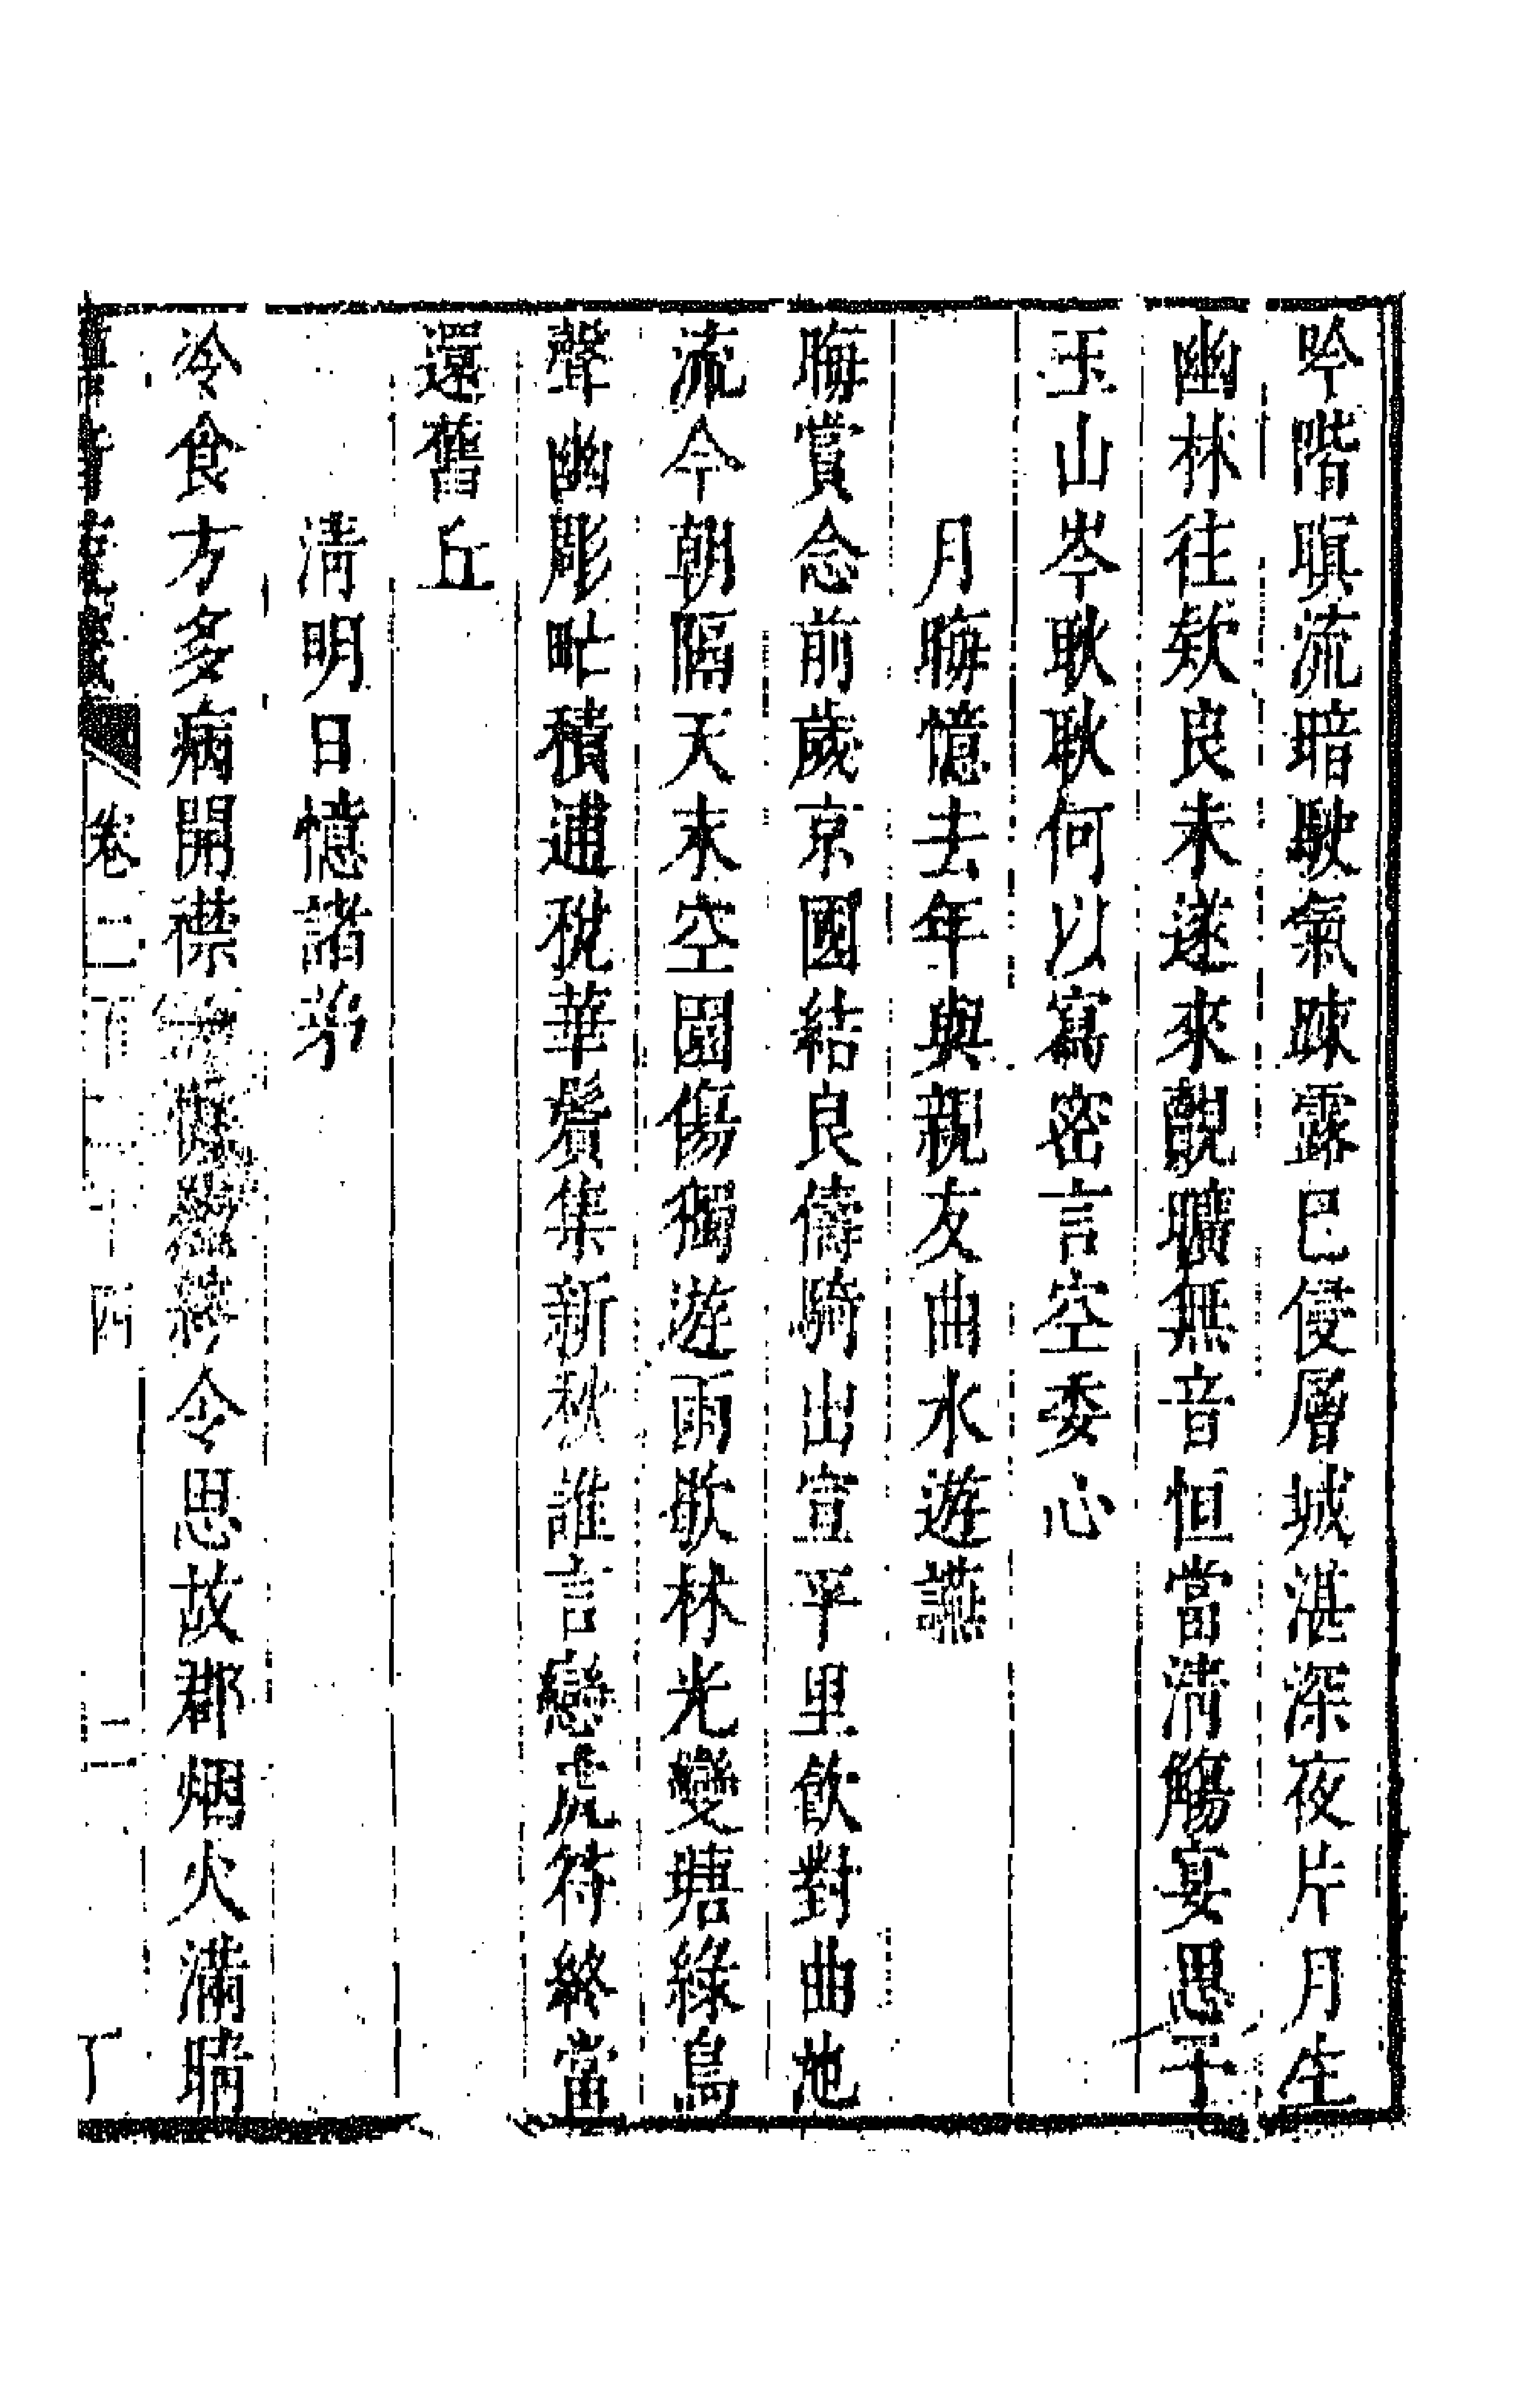 吟階暝流暗駛氣疎露已侵層城湛深夜片月生
幽林往欵良未遂來覿曠無音恒當清觴宴思子
玉山岑耿耿何以寫密言空委心
月晦憶去年與親友曲水遊讌
晦賞念前歲京國結良儔騎出宣平里飲對曲池
流今朝隔天末空園傷獨遊雨歇林光變塘綠鳥
聲幽彫甿積逋稅華鬢集新秋誰言戀虎符終當
還舊丘
清明日憶諸弟
冷食方多病開襟令思故郡烟火滿晴
卷二百二十四